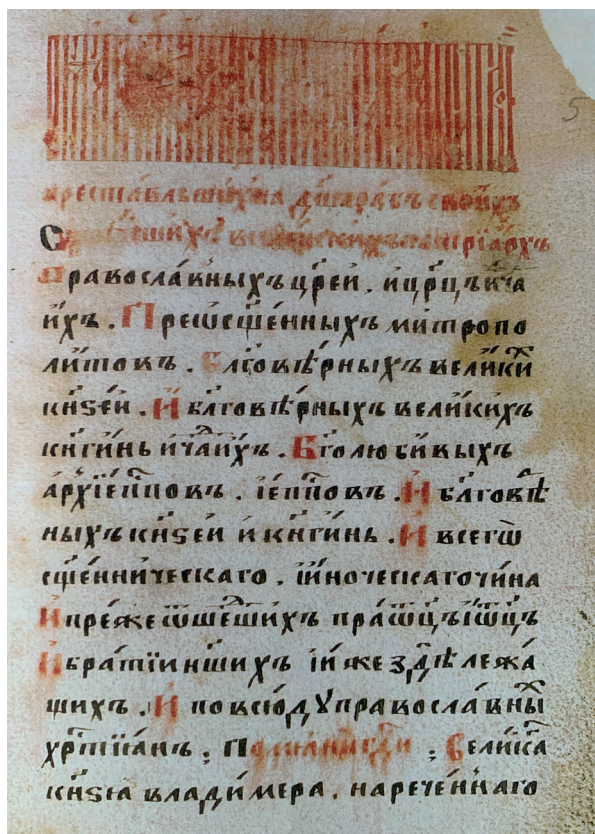 5
преставльшихся
С вселенскихъ патрїархъ
Православныхъ цр҃еи . и цр҃цъ и ча
и́хъ . Преѡсщ҃е́нныхъ митропо
литовъ . Бл҃гові́рныхъ вели́ки
кн҃ѕе́и . И бл҃говѣ́рныхъ вели́кихъ
кн҃ги́нь и ча́и́хъ . Бг҃олюби́выхъ
архїеп҃повъ . їеп҃повъ . И бл҃говѣ
ныхъ кн҃ѕе́и и кн҃ги́нь . И всегѡ̀
сщ҃е́нни́ческаго . їи́ноческаго чи́на
И пре́же ѿше́шихъ пра́ѿц҃ъ и ѿц҃ъ
И бра́тїи нш҃ихъ їи́же здѣ̀ лежа́
щихъ . И повсю́дꙋ правосла́вны
хр҃тїа́нъ ; Помѧни гд҃и ; Вели́ка
кн҃ѕѧ влади́мера . нарече́ннаго